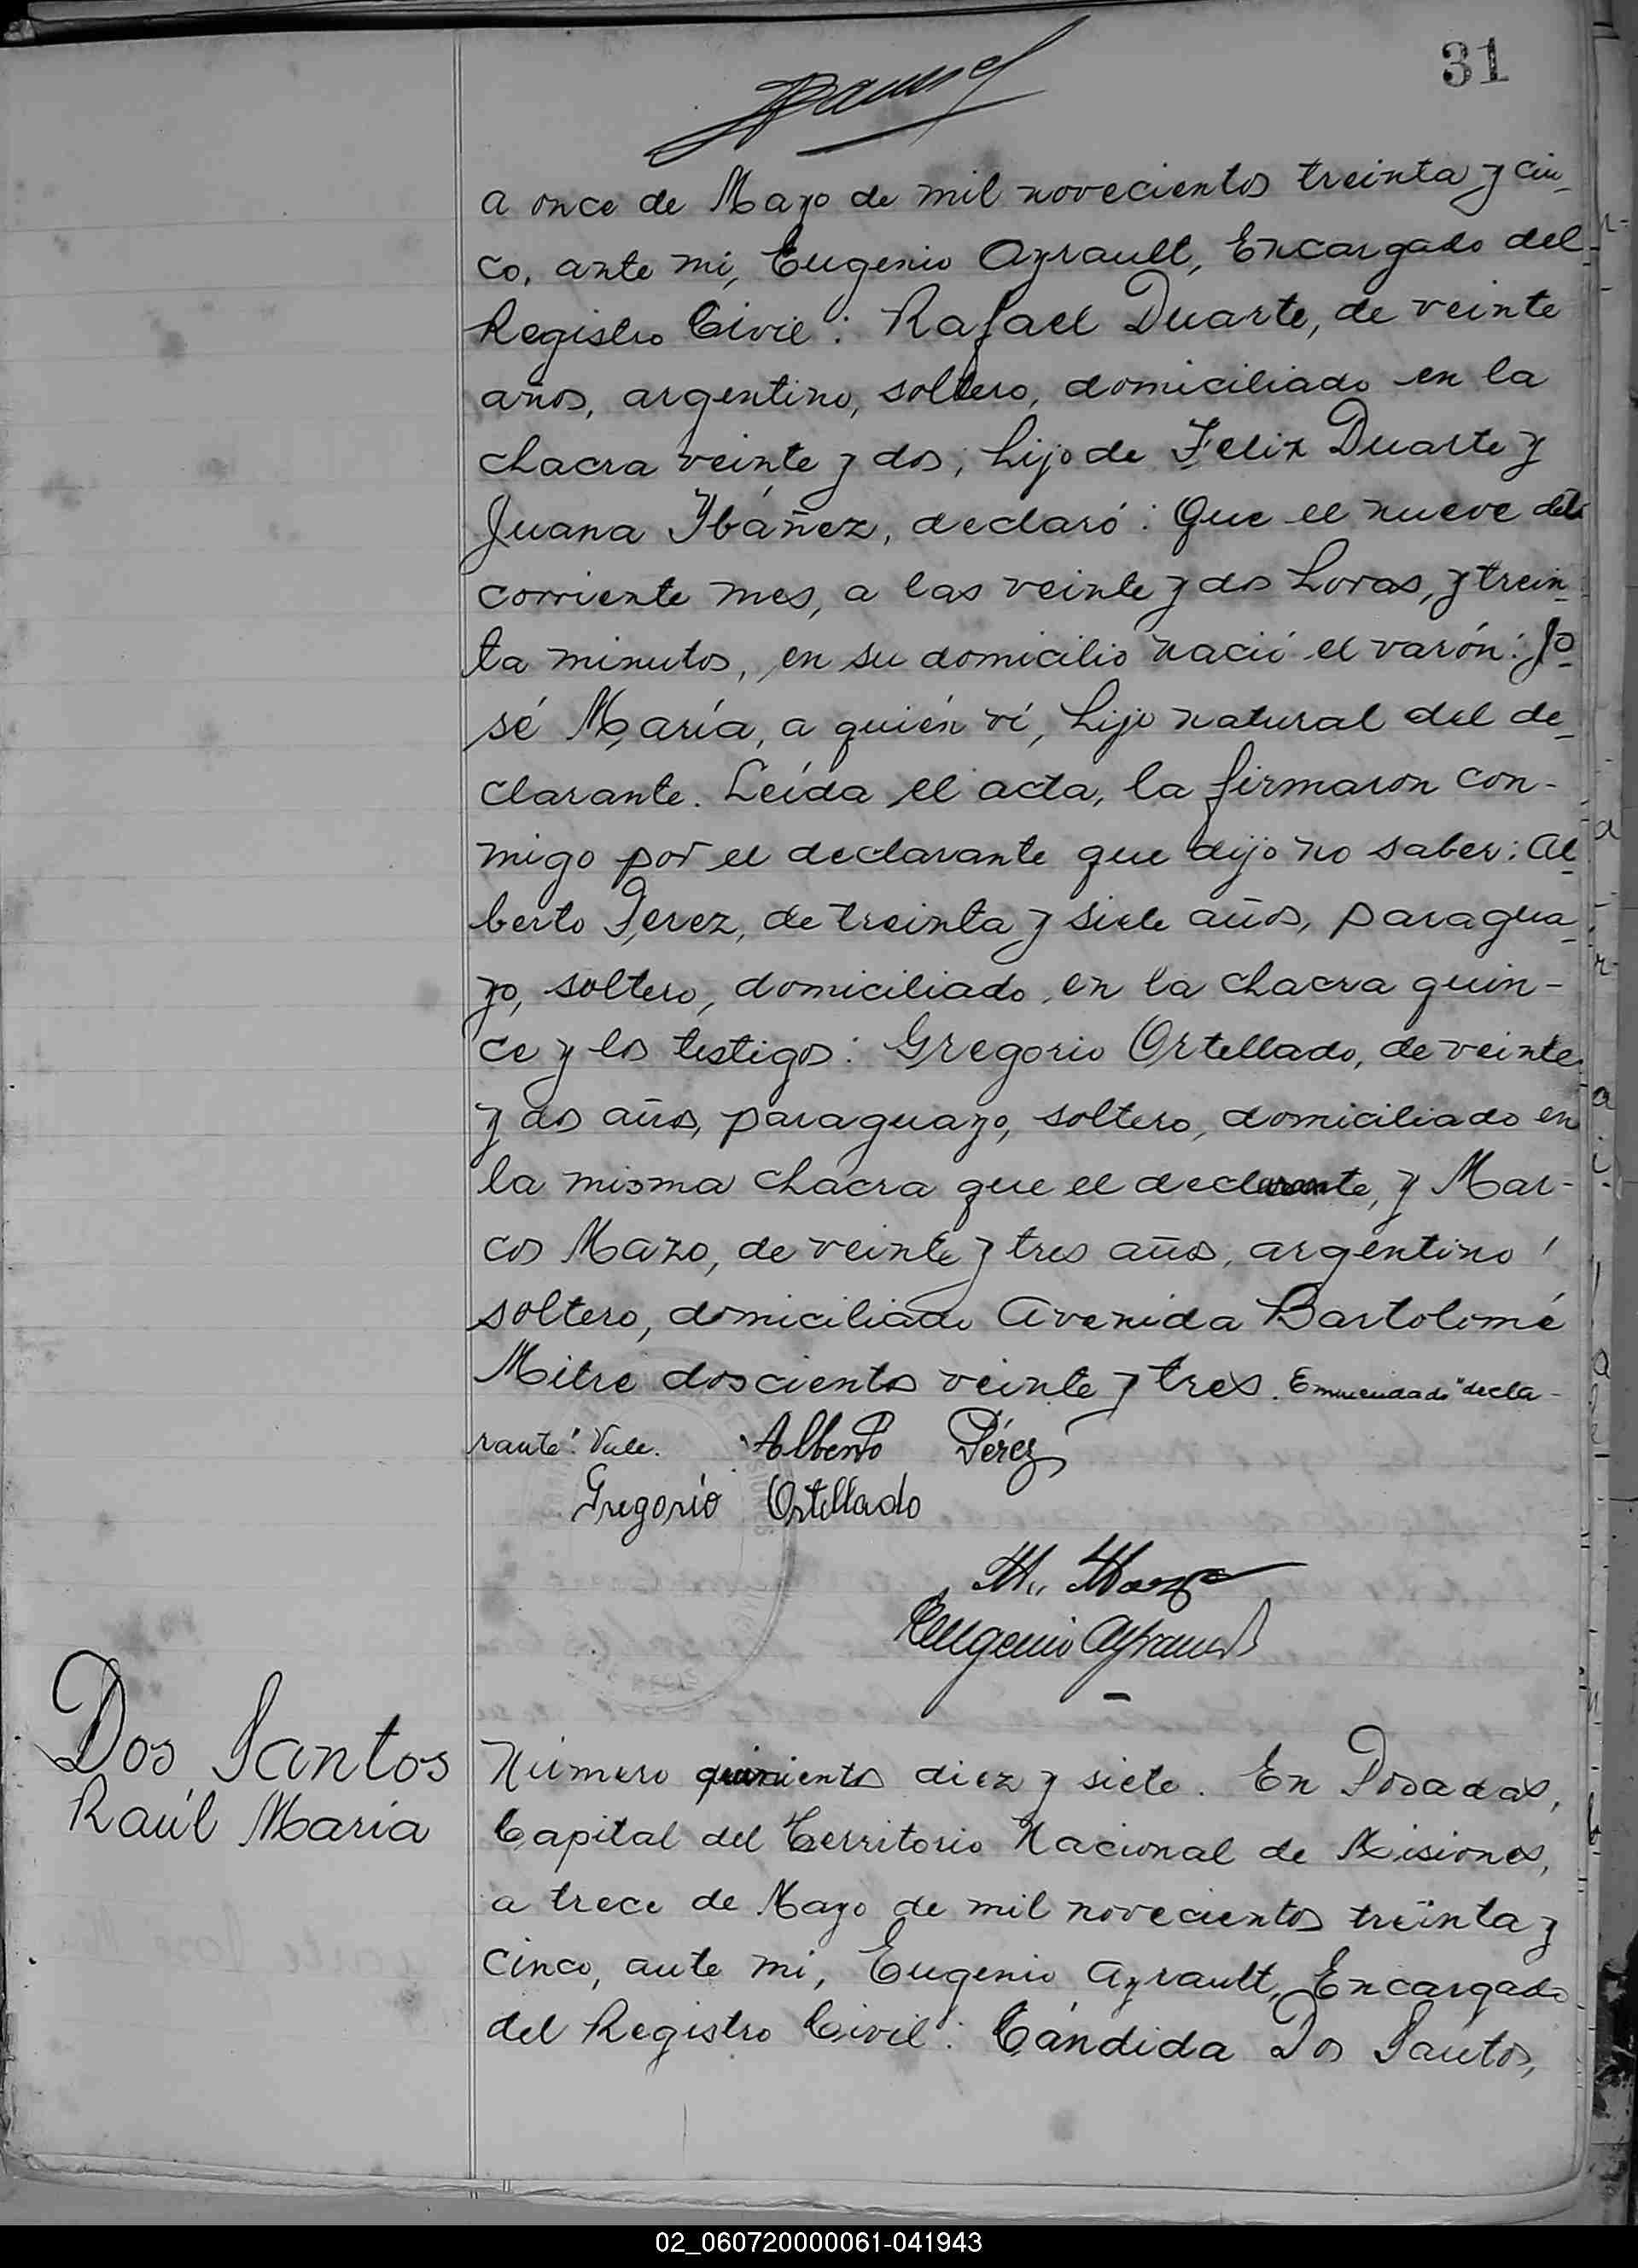 31
a once de Mayo de mil novecientos treinta y cin-
co, ante mí, Eugenio Ayrault, Encargado del
Registro Civil: Rafael Duarte, de veinte
años, argentino, soltero, domiciliado en la
chacra veinte y dos, hijo de Felix Duarte y
Juana Ybáñez, declaró: Que el nueve del
corriente mes, a las veinte y dos horas, y trein-
ta minutos, en su domicilio nació el varón: Jo-
sé María, a quién ví, hijo natural del de-
clarante. Leída el acta, la firmaron con-
migo por el declarante que dijo no saber: Al-
berto Perez, de treinta y siete años, paragua-
yo, soltero, domiciliado en la chacra quin-
ce y los testigos: Gregorio Ortellado, de veinte
y dos años, paraguayo, soltero, domiciliado en
la misma chacra que el declarante, y Mar-
cos Mazo, de veinte y tres años, argentino,
soltero, domiciliado Avenida Bartolomé
Mitre doscientos veinte y tres. Enmendado "decla-
rante". Vale. Alberto Pérez
Gregorio Ortellado
M. Mazo
Eugenio Ayrault
Dos Santos
Raúl María
Número quinientos diez y siete. En Posadas,
Capital del Territorio Nacional de Misiones,
a trece de Mayo de mil novecientos treinta y
cinco, ante mí, Eugenio Ayrault, Encargado
del Registro Civil: Cándida Dos Santos,
02_060720000061-041943